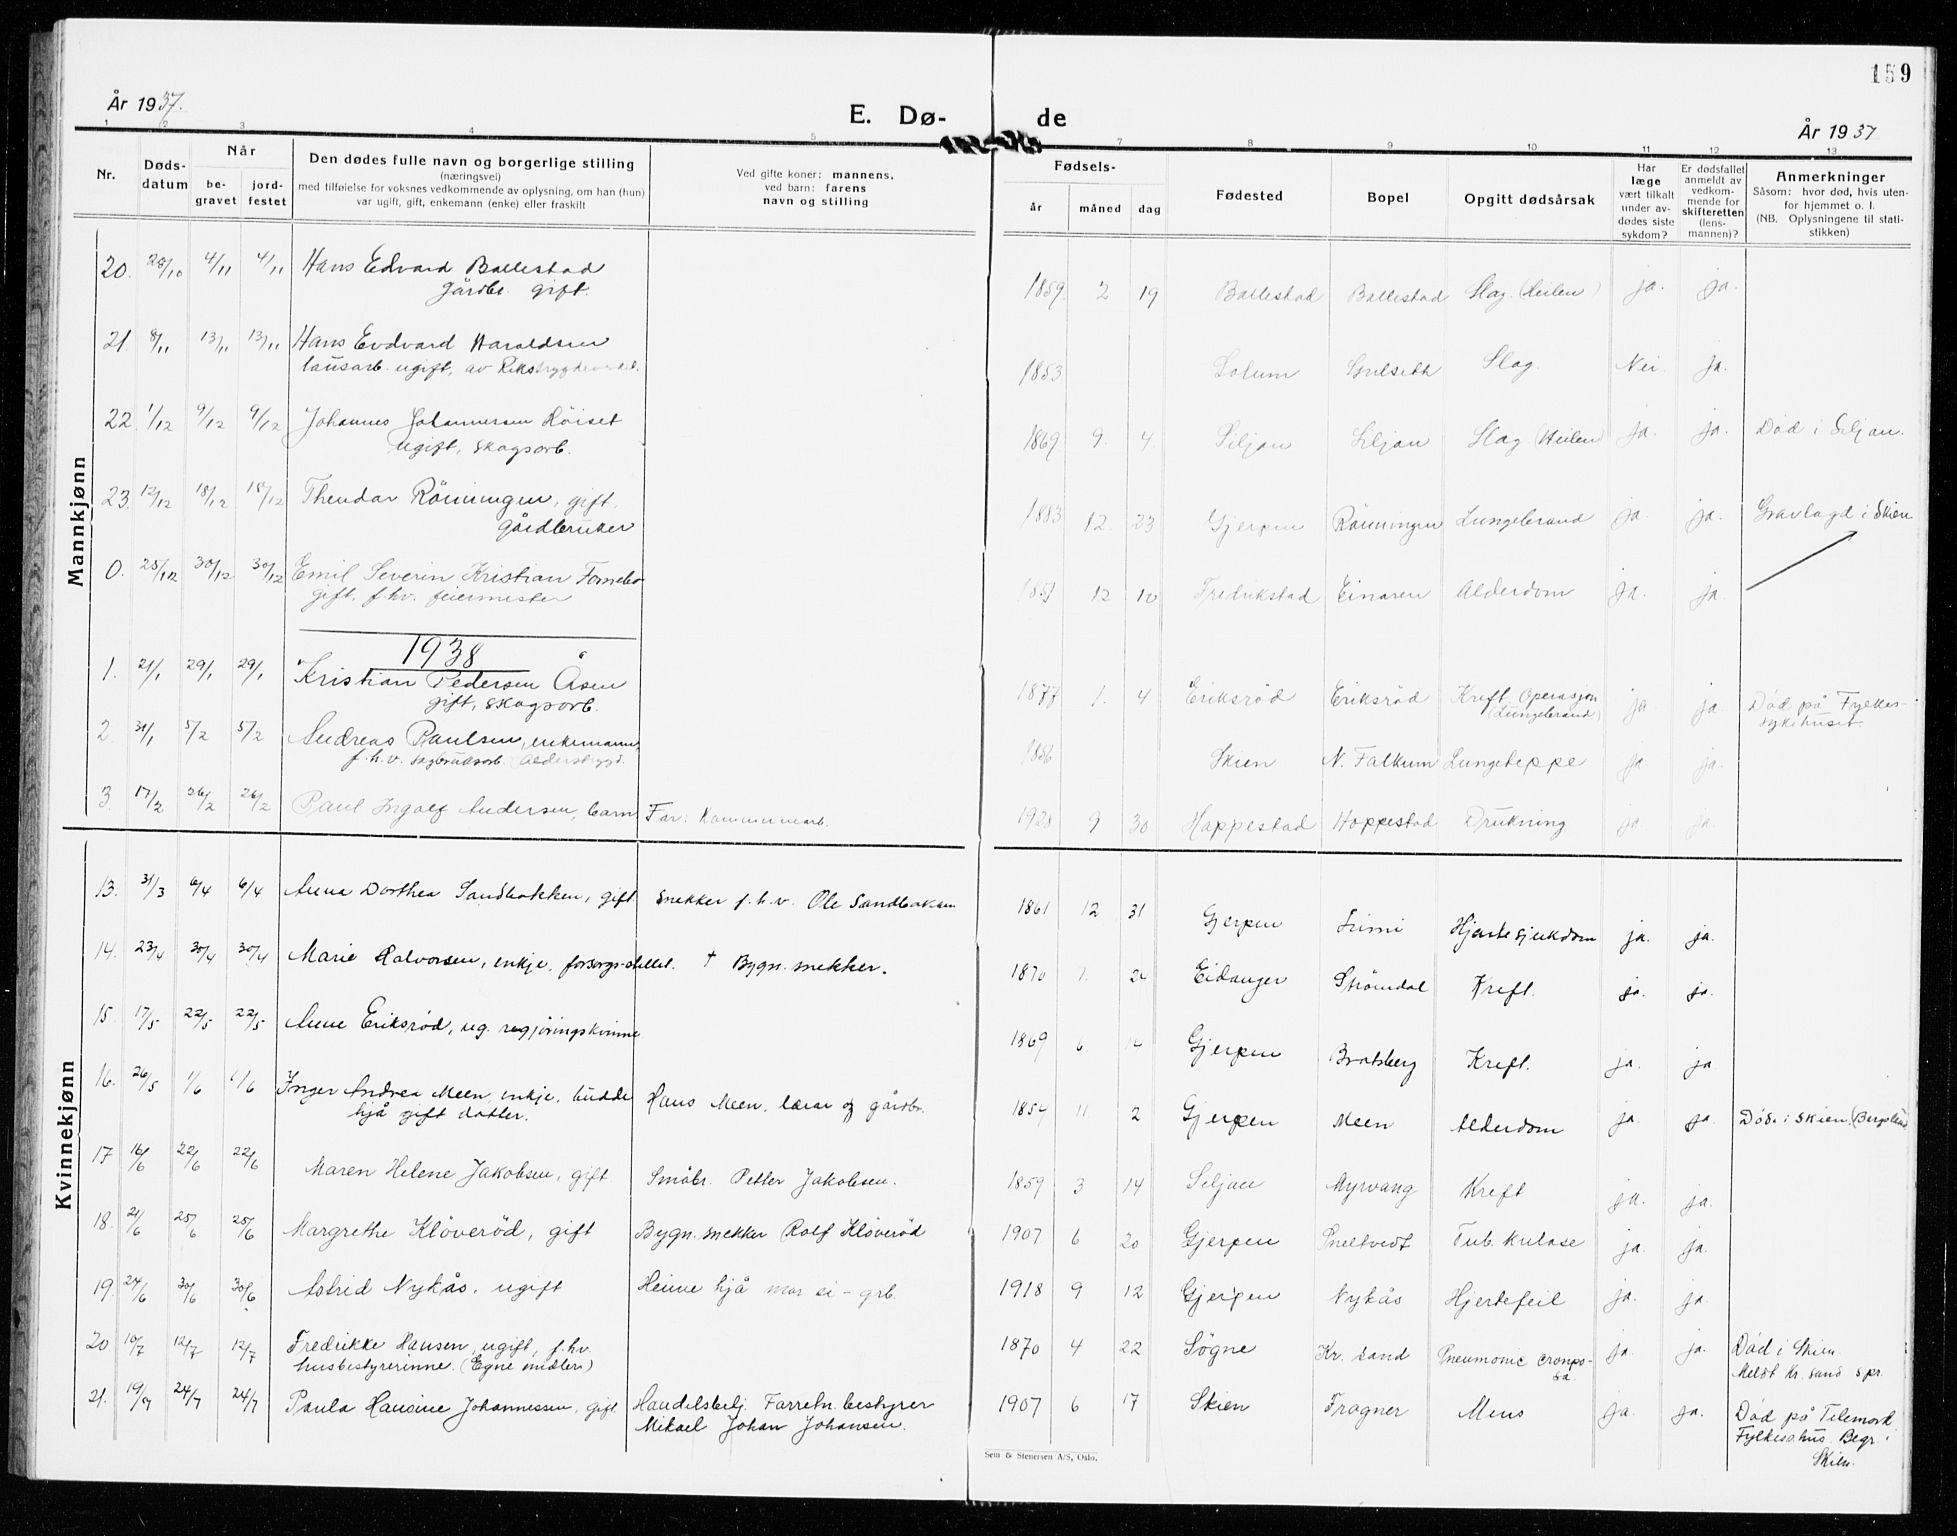 159
År 1937.
E. Dø- de
År 1937
1 2 3 4 5 7 8 9 10 11 12 13
Nr.
Døds-
datum
Når
be-
gravet
jord-
festet
Den dødes fulle navn og borgerlige stilling
(næringsvei)
med tilføielse for voksnes vedkommende av oplysning, om han (hun)
var ugift, gift, enkemann (enke) eller fraskilt
Ved gifte koner: mannens,
ved barn: farens
navn og stilling
Fødsels-
år måned dag
Fødested
Bopel
Opgitt dødsårsak
Har
læge
vært tilkalt
under av-
dødes siste
sykdom?
Er dødsfallet
anmeldt av
vedkom-
mende for
skifteretten
(lens-
mannen)?
Anmerkninger
Såsom: hvor død, hvis uten-
for hjemmet o. l.
(NB. Oplysningene til stati-
stikken)
Mannkjønn
20. 28/10 4/11 4/11 Hans Edvard Ballestad 1859 2 19 Ballestad Ballestad Slag (Heilen) ja. ja.
gårdbr. gift.
21. 8/11 13/11 13/11 Hans Evdvard Haraldsen 1853 Solum Gulseth Slag. Nei. ja.
lausarb. ugift, av
22. 1/12 9/12 9/12 Johannes Johannersen Röiset 1869 9. 4. Siljan Siljan Slag (Heilen) ja. ja. Död i Siljan.
ugift, skogsarb.
23. 12/12 18/12 18/12 Theodor Rönningen, gift. 1883 12. 23 Gjerpen Rönningen Lungebrand ja. ja. Gravlagd i Skien
gårdbruker
0. 25/12 30/12 30/12 Emil Severin Kristian Fornebo 12 10 Fredrikstad Einaren Alderdom ja. ja.
gift, f.hv. feiermester
1938
1. 21/1 29/1 29/1 Kristian Pedersen Åsen 1877 1. 4 Eriksröd Eriksröd Kreft, Operasjon (Lungebrand) ja ja. Död på Fylkes-
gift, skogsarb. sykehuset.
2. 31/1 5/2 5/2 Andreas Paulsen, enkemann 1856 Skien N. Falkum Lungebeppe ja ja.
f.h.v. sagbruksarb. Alderstrygd.
3. 17/2 26/2 26/2 Paul Ingolf Andersen, barn Far: Kommunearb. 1928 9 30 Hoppestad Hoppestad Drukning ja ja.
Kvinnekjønn
13. 31/3 6/4 6/4 Anna Dorthea Sandbakken, gift. snekker f.h.v. Ole Sandbakken 1861 12 31 Gjerpen Limi Hjertesjukdom ja. ja.
14. 23/4 30/4 30/4 Marie Halvorsen, enkje, forsorgs-stellet. † Bygn. snekker. 1870 1. 24 Eidanger Strömdal Kreft. ja. ja.
15. 17/5 22/5 22/5 Anne Eriksröd, ug. regjöringskvinne 1869 6. 14 Gjerpen Bratsberg Kreft. ja. ja.
16. 26/5 1/6 1/6 Inger Andrea Meen, enkje, budde Hans Meen, lærar og gårdbr. 1854 11 2 Gjerpen Meen Alderdom ja. ja. Död i Skien. (Bergsland)
hjå gift dotter.
17 16/6 22/6 22/6 Maren Helene Jakobsen, gift Småbr. Petter Jakobsen. 1859 3 14 Siljan Myrvang Kreft ja. ja.
18. 21/6 25/6 25/6 Margrethe Klöveröd, gift Bygn. snekker Rolf Klöveröd 1907 6 20 Gjerpen Sneltvedt Tub.kulose ja. ja.
19. 24/6 30/6 30/6 Astrid Nykås. ugift Heime hjå mor si - grb. 1918 9 12 Gjerpen Nykås Hjertefeil ja. ja.
20 10/7 12/7 12/7 Fredrikke Hansen, ugift, f.hv. 1870 4 22 Sögne Kr. sand Pneumonie croupo- ja. ja. Död i Skien.
husbestyrerinne. (Egne midler) sa. Meldt Kr. sand spr.
21. 19/7 24/7 24/7 Paula Hansine Johannessen, gift Handelsbetj. Farretn. bestyrer 1907 6 17 Skien Frogner Mens ja. ja. Död på Telemark
Mikael Johan Johansen. Fylkessjhus. Begr. i
Skien.
Sem & Stenersen A/S, Oslo.